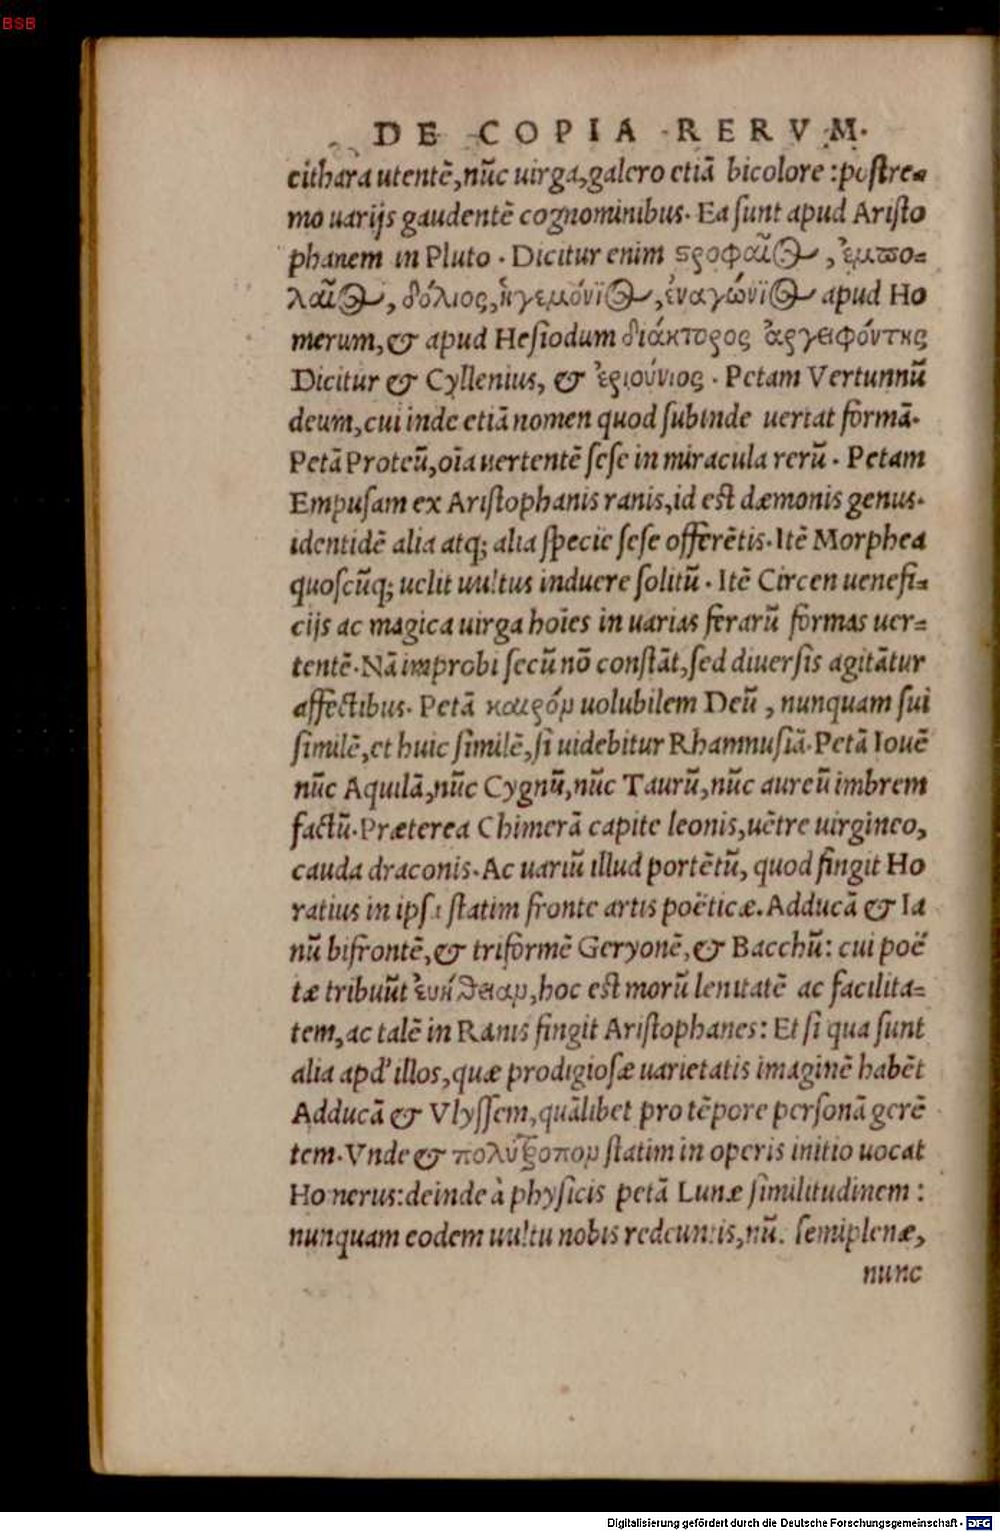 BSB
DE COPIA RERVM.
cithara utentẽ, nũc uirga, galero etiã bicolore : postre-
mo uarijs gaudentẽ cognominibus. Ea sunt apud Aristo
phanem in Pluto . Dicitur enim ϛροφαῖος, ἐμπο-
λαῖος, δόλιος, ἡγεμόνιος, ἐναγώνιος apud Ho
merum, & apud Hesiodum διάκτορος ἀργειφόντης
Dicitur & Cyllenius, & ἐριούνιος . Petam Vertunnũ
deum, cui inde etiã nomen quod subinde uertat formã.
Petã Proteũ, oĩa uertentẽ sese in miracula rerũ . Petam
Empusam ex Aristophanis ranis, id est dæmonis genus.
identidẽ alia atq; alia specie sese offerẽtis. Itẽ Morphea
quoscũq; uelit uultus induere solitũ . Itẽ Circen uenefi-
cijs ac magica uirga hoĩes in uarias ferarũ formas uer-
tentẽ. Nã improbi secũ nõ constãt, sed diuersis agitãtur
affectibus. Petã καιρόν uolubilem Deũ , nunquam sui
similẽ, et huic similẽ, si uidebitur Rhamnusiã. Petã Iouẽ
nũc Aquilã, nũc Cygnũ, nũc Taurũ, nũc aureũ imbrem
factũ. Præterea Chimerã capite leonis, uẽtre uirgineo,
cauda draconis. Ac uariũ illud portẽtũ, quod fingit Ho
ratius in ipsa statim fronte artis poëticæ. Adducã & Ia
nũ bifrontẽ, & triformẽ Geryonẽ, & Bacchũ: cui poë
tæ tribuũt ἐυήθειαν, hoc est morũ lenitatẽ ac facilita-
tem, ac talẽ in Ranis fingit Aristophanes: Et si qua sunt
alia apd' illos, quæ prodigiosæ uarietatis imaginẽ habẽt
Adducã & Vlyssem, quãlibet pro tẽpore personã gerẽ
tem. Vnde & πολύτροπον statim in operis initio uocat
Homerus: deinde à physicis petã Lunæ similitudinem :
nunquam eodem uultu nobis redeuntis, nũc semiplenæ,
nunc
Digitalisierung gefördert durch die Deutsche Forschungsgemeinschaft - DFG